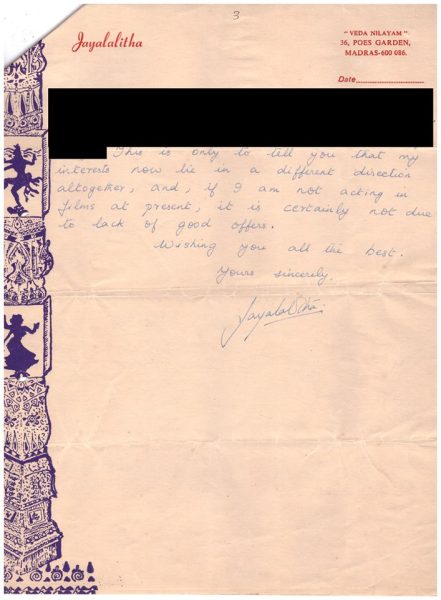 3
Jayalalitha
" VEDA NILAYAM "
36, POES GARDEN,
MADRAS-600 086.
Date
This is only to tell you that my
interests now lie in a different direction
altogether, and, if I am not acting in
films at present, it is certainly not due
to lack of good offers.
Wishing you all the best.
Yours sincerely.
Jayalalitha.